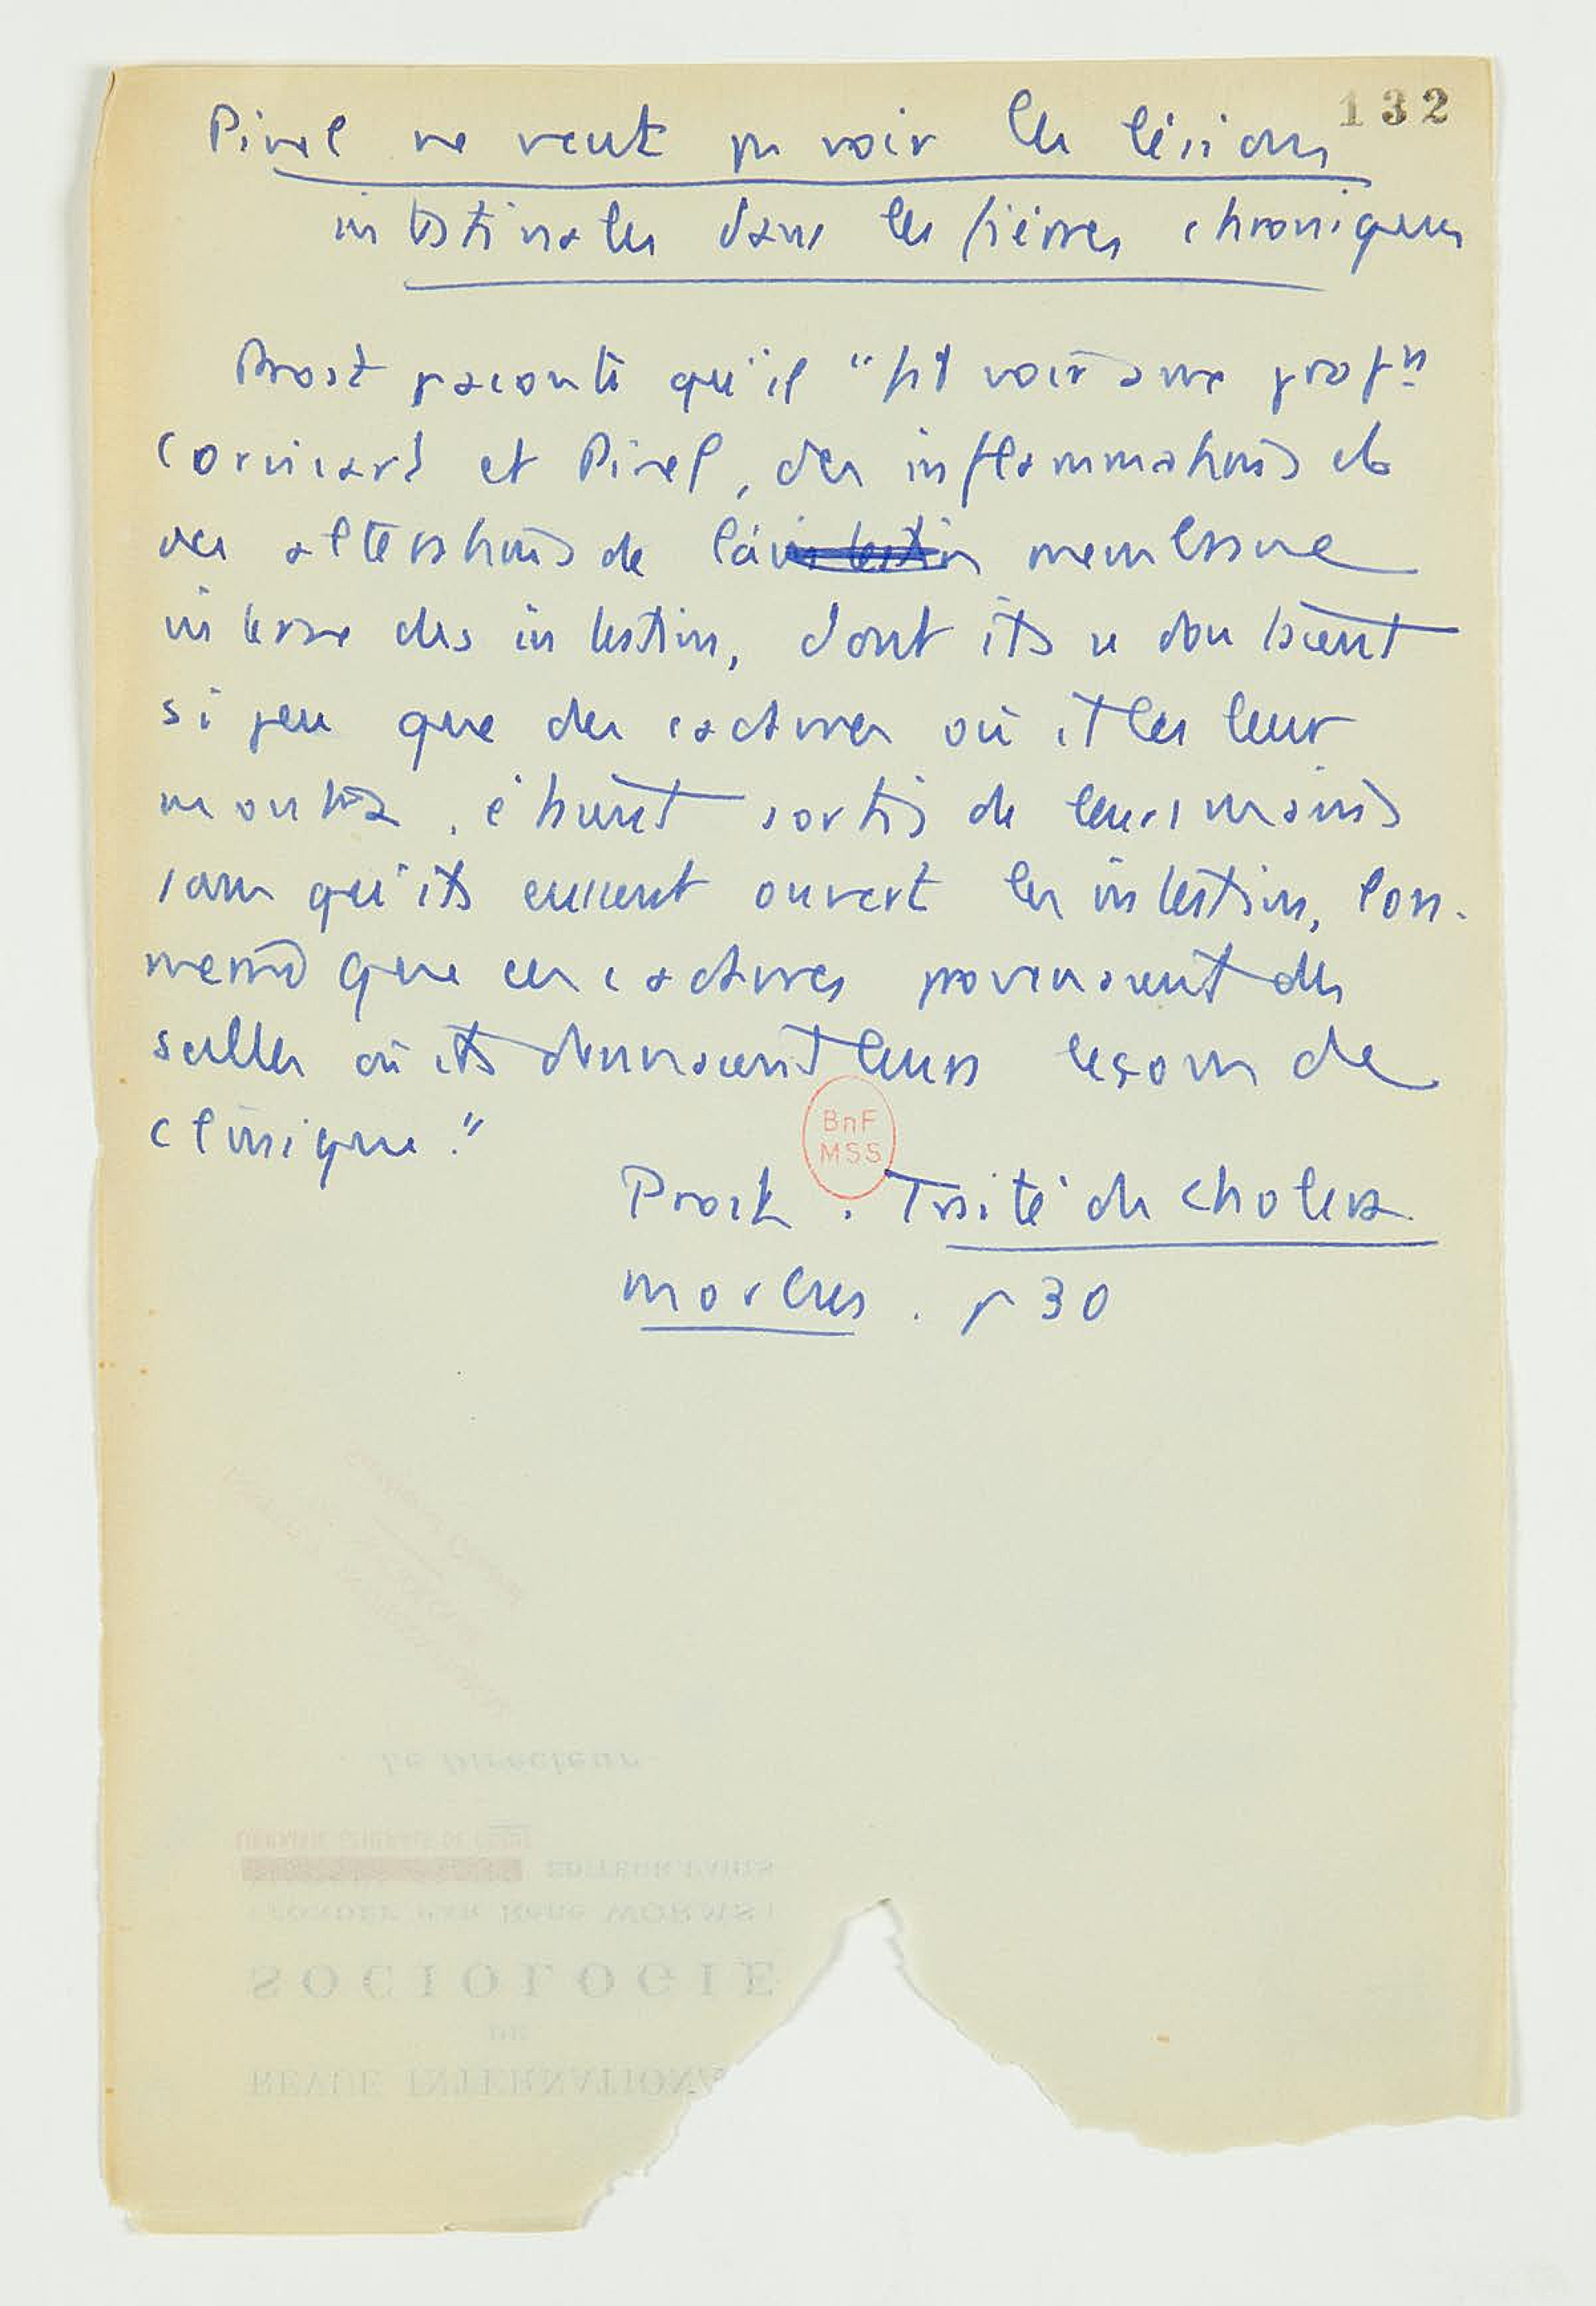 132
Pinel ne veut pas voir les lésions
intestinales dans les fièvres chroniques
Prost raconte qu'il "fit voir aux profrs
Corvisart et Pinel, des inflammations et
des altérations de la membrane
interne des intestins, dont ils se doutaient
si peu que des cadavres où il les leur
montra, étaient sortis de leurs mains
sans qu'ils eussent ouvert les intestins,
que ces cadavres provenaient des
salles où ils donnaient leurs leçons de
clinique."
BnF
MSS
Prost. Traité du cholera
morbus. p 30
Le Directeur
EDITEUR PARIS
(FONDÉE PAR René WORMS)
SOCIOLOGIE
DE
REVUE INTERNATIONA